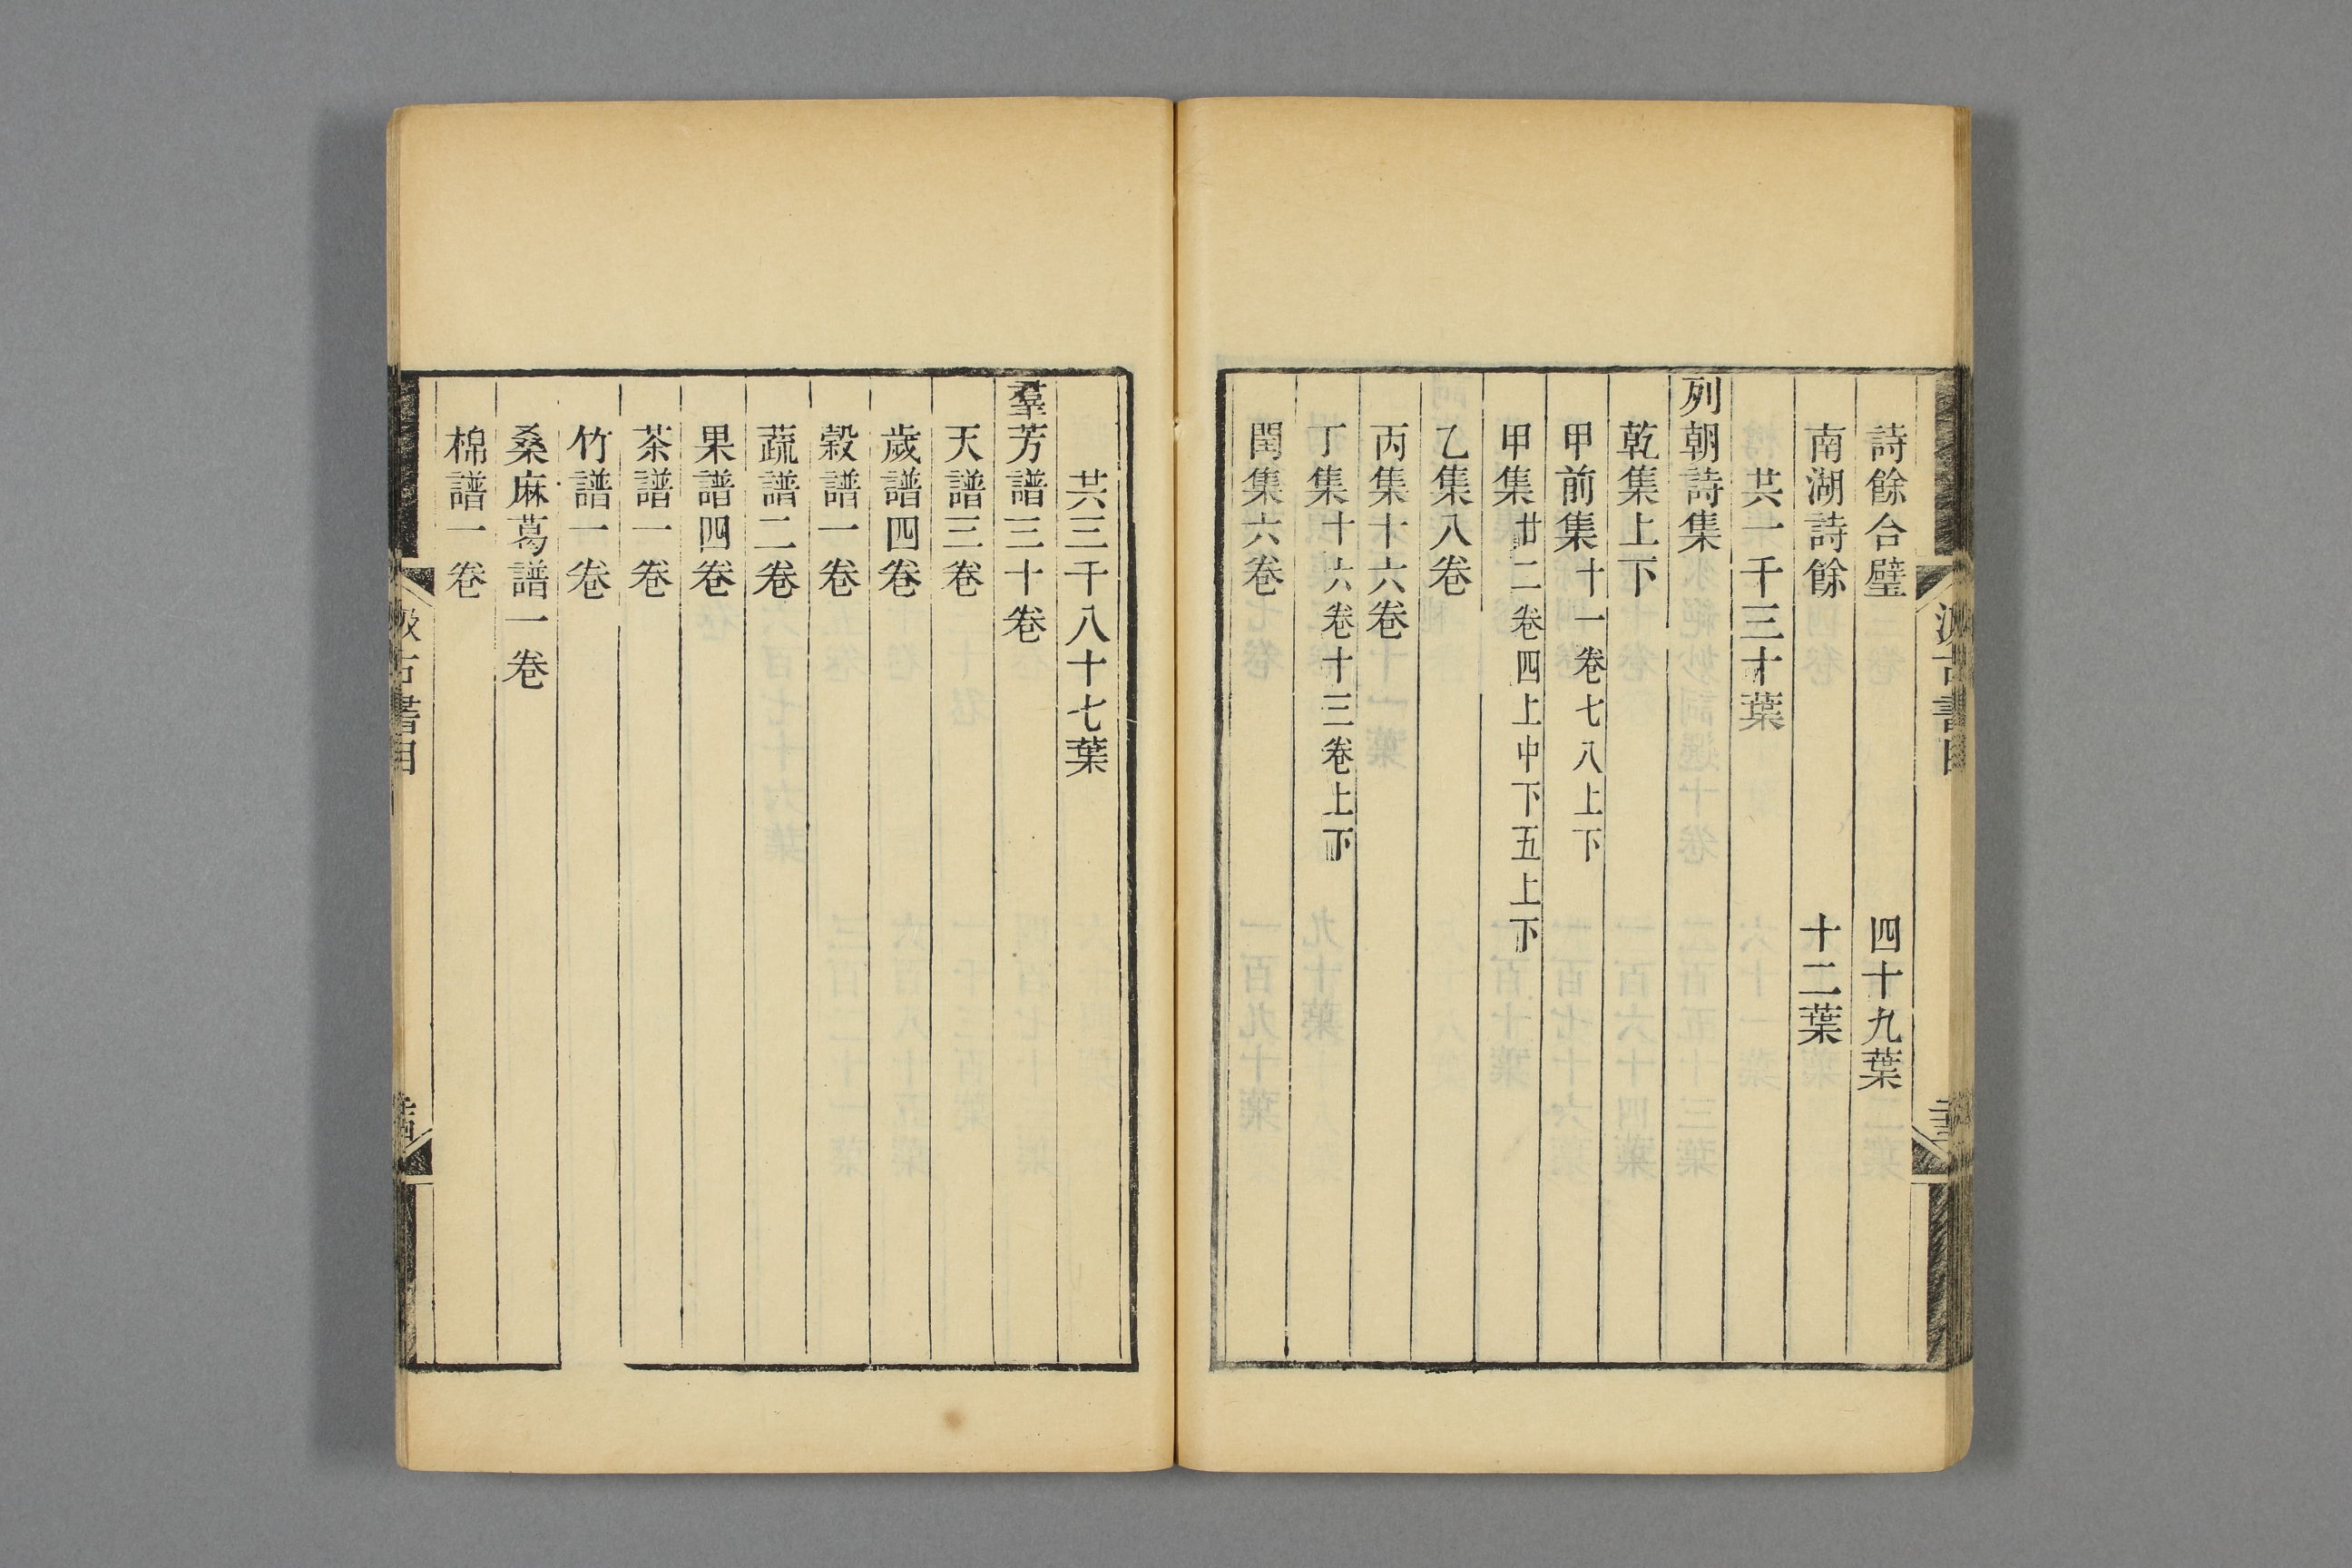 詩餘合璧　四十九葉
南湖詩餘　十二葉
共一千三十葉
列朝詩集
乾集上下
甲前集十一卷七八上下
甲集廿二卷四上中下五上下
乙集八卷
丙集十六卷
丁集十六卷十三卷上下
閏集六卷
共三千八十七葉
羣芳譜三十卷
天譜三卷
歲譜四卷
穀譜一卷
蔬譜二卷
果譜四卷
茶譜一卷
竹譜一卷
桑麻葛譜一卷
棉譜一卷
汲古書目